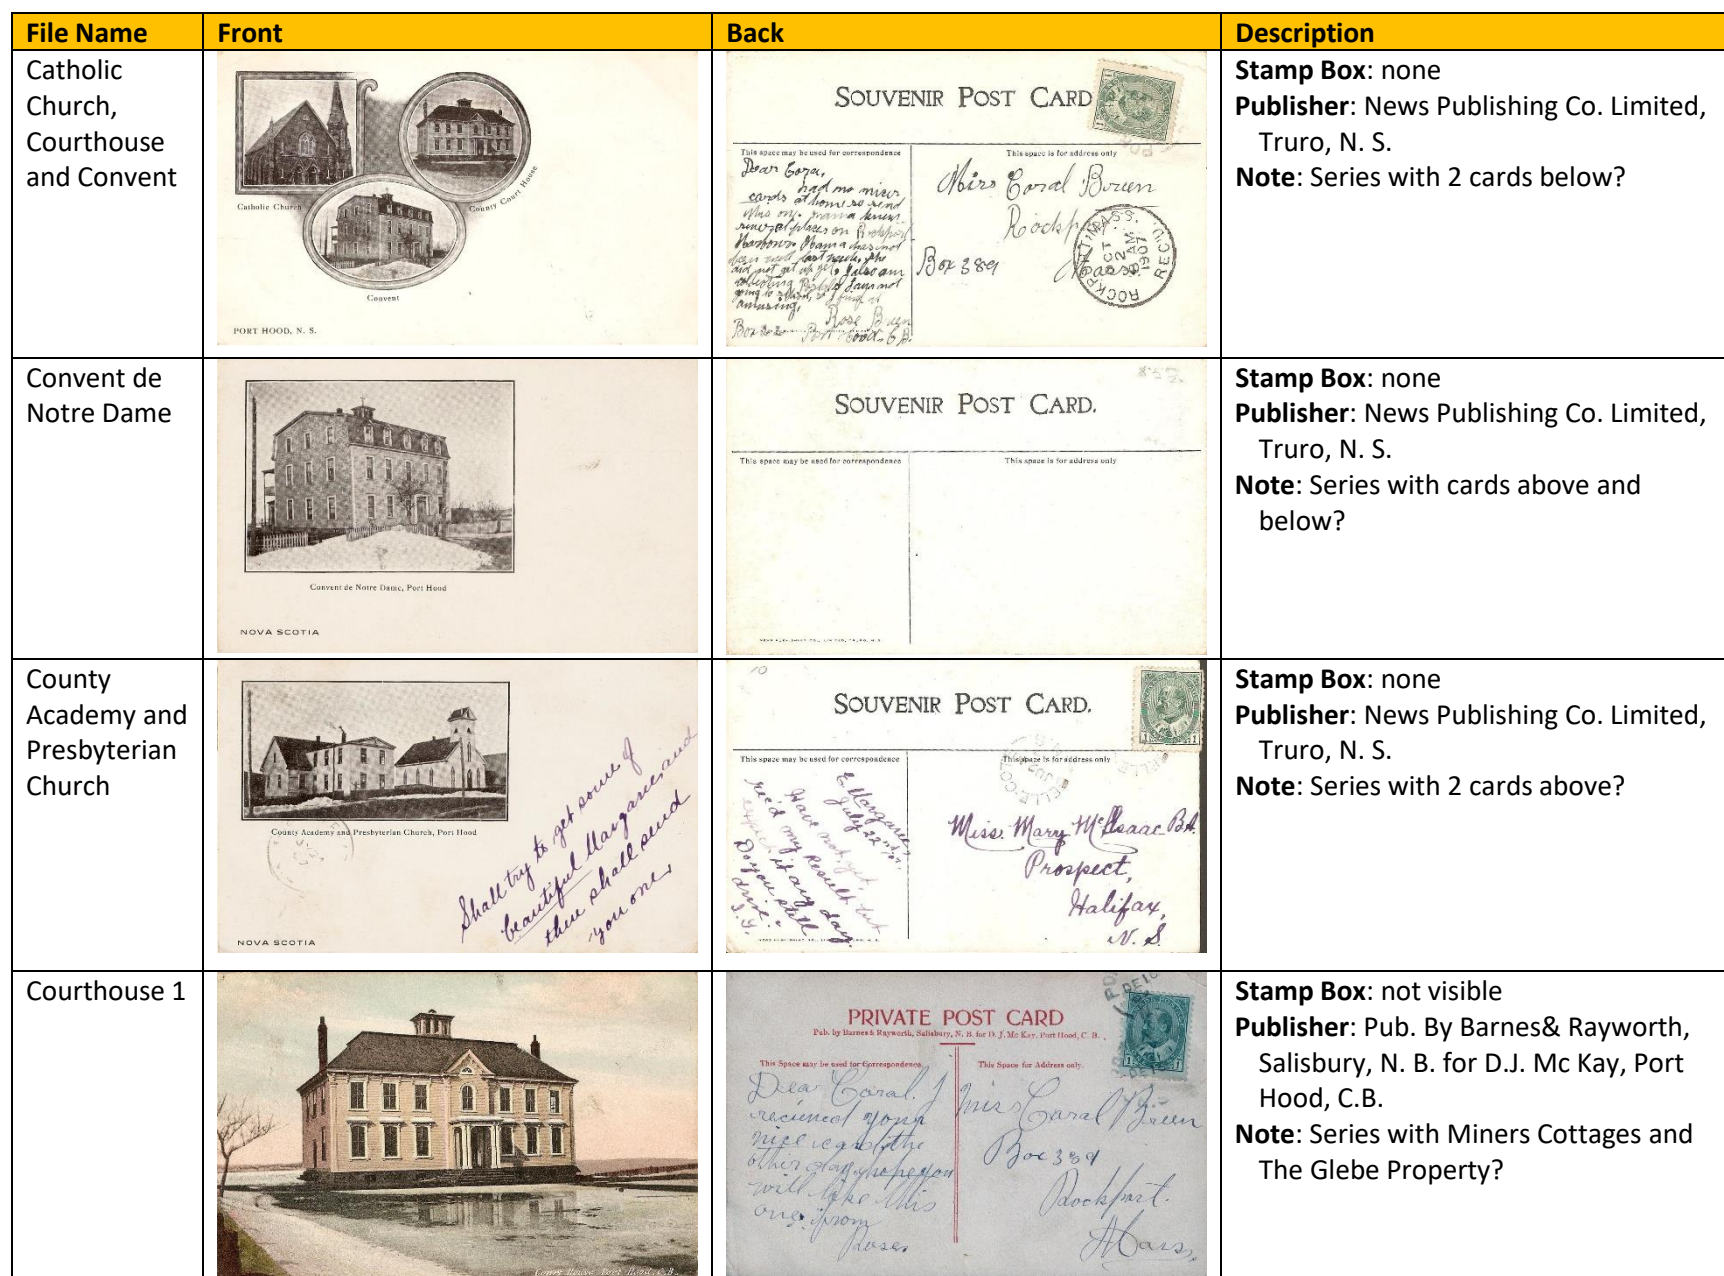 File Name Front Back Description
Catholic
Church,
Courthouse
and Convent
Catholic Church
County Court House
Convent
PORT HOOD, N. S.
SOUVENIR POST CARD
This space may be used for correspondence
This space is for address only
Dear Coral,
had no nicer
cards at home so send
this one. mama knew
several places on Rockport
been well last week, she
did not get up yet. I also am
collecting
going to
amusing.
Rose Bruen
Box 22 Port Hood. C.B.
Miss Coral Bruen
Rockport
Box 389 Mass
ROCKPORT MASS.
OCT
2
AM
1907
REC'D
Stamp Box: none
Publisher: News Publishing Co. Limited,
Truro, N. S.
Note: Series with 2 cards below?
Convent de
Notre Dame
Convent de Notre Dame, Port Hood
NOVA SCOTIA
SOUVENIR POST CARD.
This space may be used for correspondence
This space is for address only
NEWS PUBLISHING CO., LIMITED, TRURO, N.S.
Stamp Box: none
Publisher: News Publishing Co. Limited,
Truro, N. S.
Note: Series with cards above and
below?
County
Academy and
Presbyterian
Church
County Academy and Presbyterian Church, Port Hood
Shall try to get some of
beautiful Margaree and
then shall send
you one.
NOVA SCOTIA
10
SOUVENIR POST CARD.
This space may be used for correspondence
This space is for address only
E. Margaree,
July 22nd
Have not yet
rec'd my Result but
expect it any day.
Do you still
drive?
Miss. Mary McIsaac B.A.
Prospect,
Halifax,
N. S.
Stamp Box: none
Publisher: News Publishing Co. Limited,
Truro, N. S.
Note: Series with 2 cards above?
Courthouse 1
Court House Port Hood, C.B.
PRIVATE POST CARD
Pub. by Barnes & Rayworth, Salisbury, N. B. for D. J. Mc Kay, Port Hood, C. B.
This Space may be used for Correspondence.
This Space for Address only.
Dear Coral. I
recieved your
nice card the
other day, hope you
will like this
one. from
Rose.
Miss Coral Bruen
Box 389
Rockport.
Mass,
Stamp Box: not visible
Publisher: Pub. By Barnes& Rayworth,
Salisbury, N. B. for D.J. Mc Kay, Port
Hood, C.B.
Note: Series with Miners Cottages and
The Glebe Property?